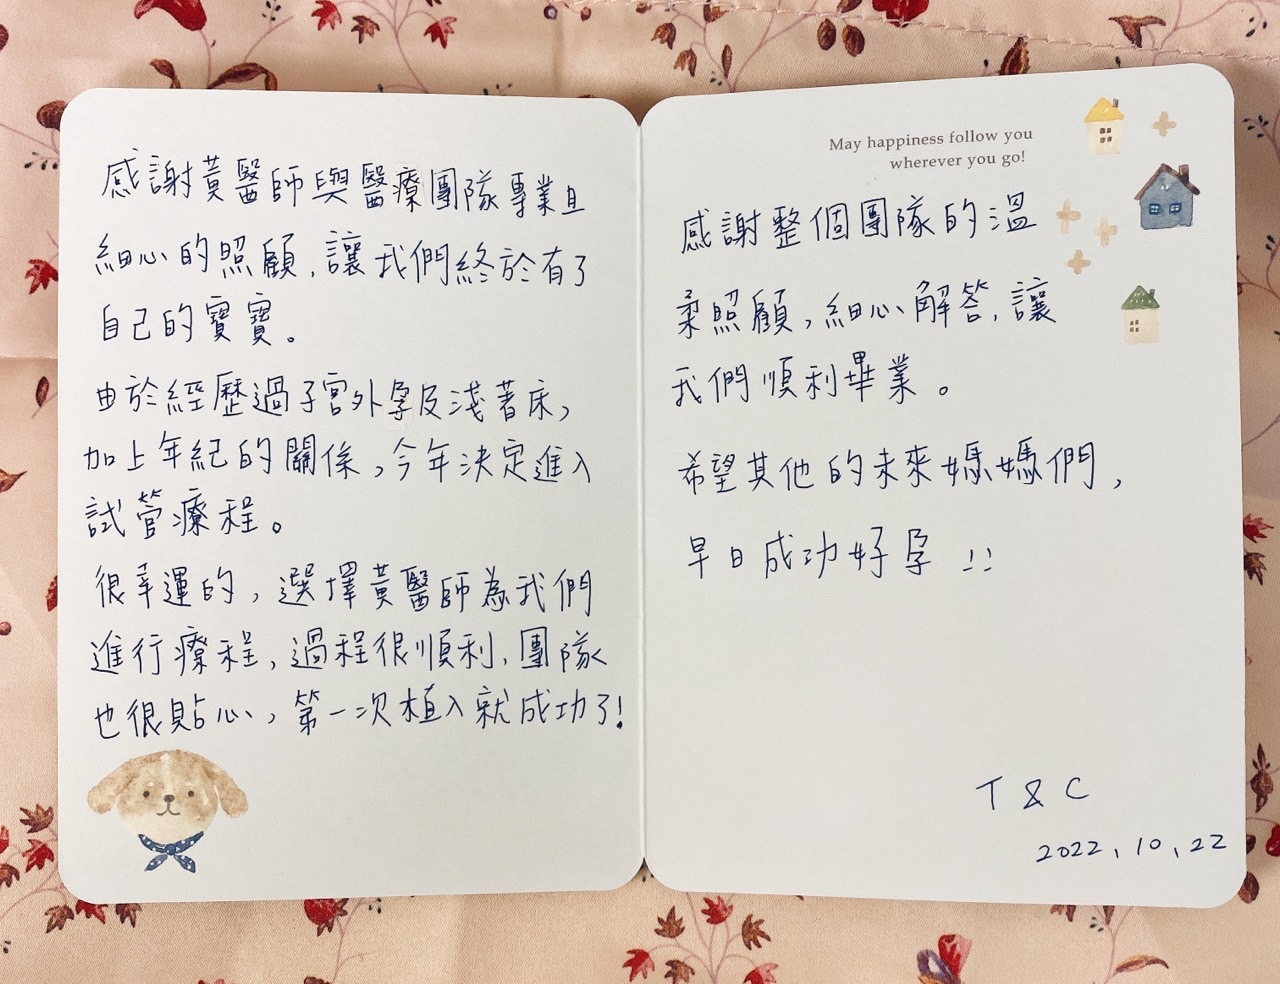 感謝黃醫師與醫療團隊專業且
細心的照顧,讓我們終於有了
自己的寶寶。
由於經歷過子宮外孕及淺著床,
加上年紀的關係,今年決定進入
試管療程。
很幸運的,選擇黃醫師為我們
進行療程,過程很順利,團隊
也很貼心,第一次植入就成功了!
May happiness follow you
wherever you go!
感謝整個團隊的溫
柔照顧,細心解答,讓
我們順利畢業。
希望其他的未來媽媽們,
早日成功好孕!!
T & C
2022.10.22